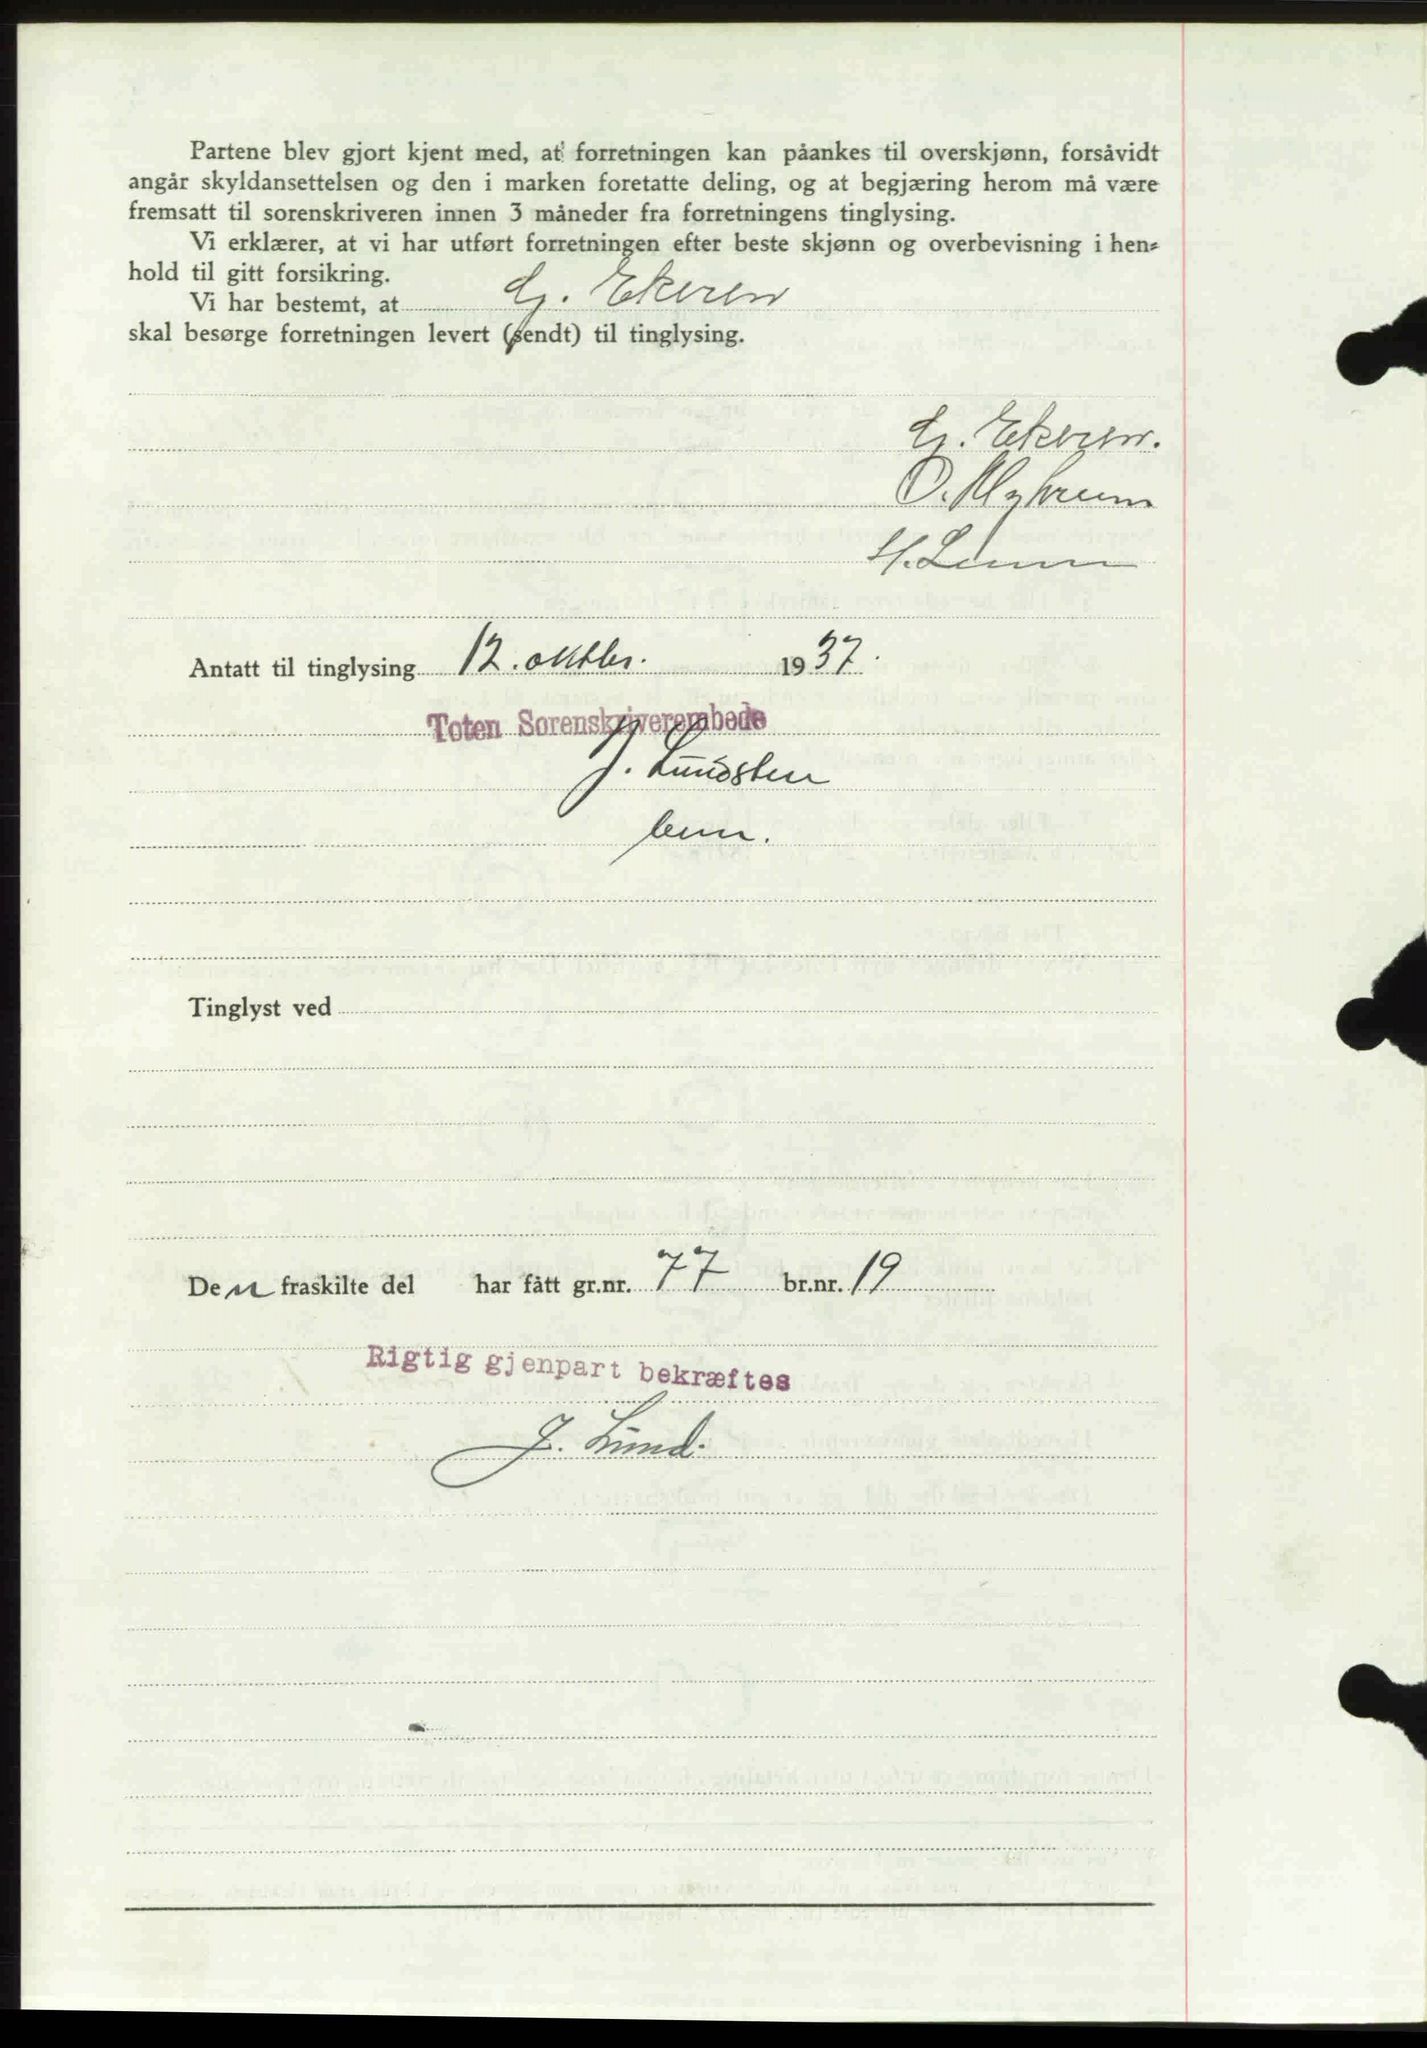 Partene blev gjort kjent med, at forretningen kan påankes til overskjønn, forsåvidt
angår skyldansettelsen og den i marken foretatte deling, og at begjæring herom må være
fremsatt til sorenskriveren innen 3 måneder fra forretningens tinglysing.
Vi erklærer, at vi har utført forretningen efter beste skjønn og overbevisning i hen-
hold til gitt forsikring.
Vi har bestemt, at G. Ekeren
skal besørge forretningen levert (sendt) til tinglysing.
G. Ekeren.
O. Myhrum
H. Lunn
Antatt til tinglysing 12. oktbr. 1937.
Toten Sorenskriverembede
J. Lundsten
Tinglyst ved
Den fraskilte del har fått gr.nr. 77 br.nr. 19
Rigtig gjenpart bekræftes
J. Lund.